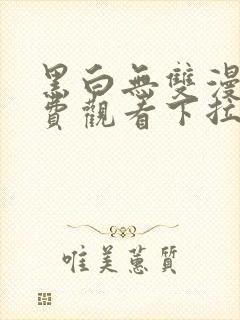 黑白無雙漫
費觀看下拉
唯美蕙質